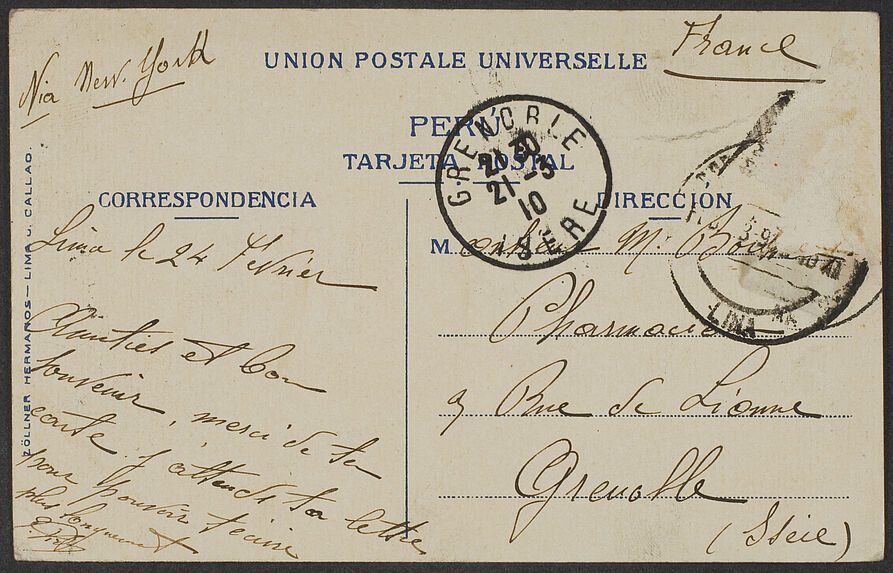 Via New-York
UNION POSTALE UNIVERSELLE
France
PERÚ
TARJETA POSTAL
GRENOBLE
21 30
21-3
10
ISERE
LIMA
CORRESPONDENCIA
DIRECCION
Lima le 24 Février
Amitiés et bon
souvenir, merci de ta
carte j'attends ta lettre
pour pouvoir t'écrire
plus longuement
M
Pharmacie
9 Rue de Lionne
Grenoble
(Isère)
ZÖLLNER HERMANOS — LIMA U. CALLAO.